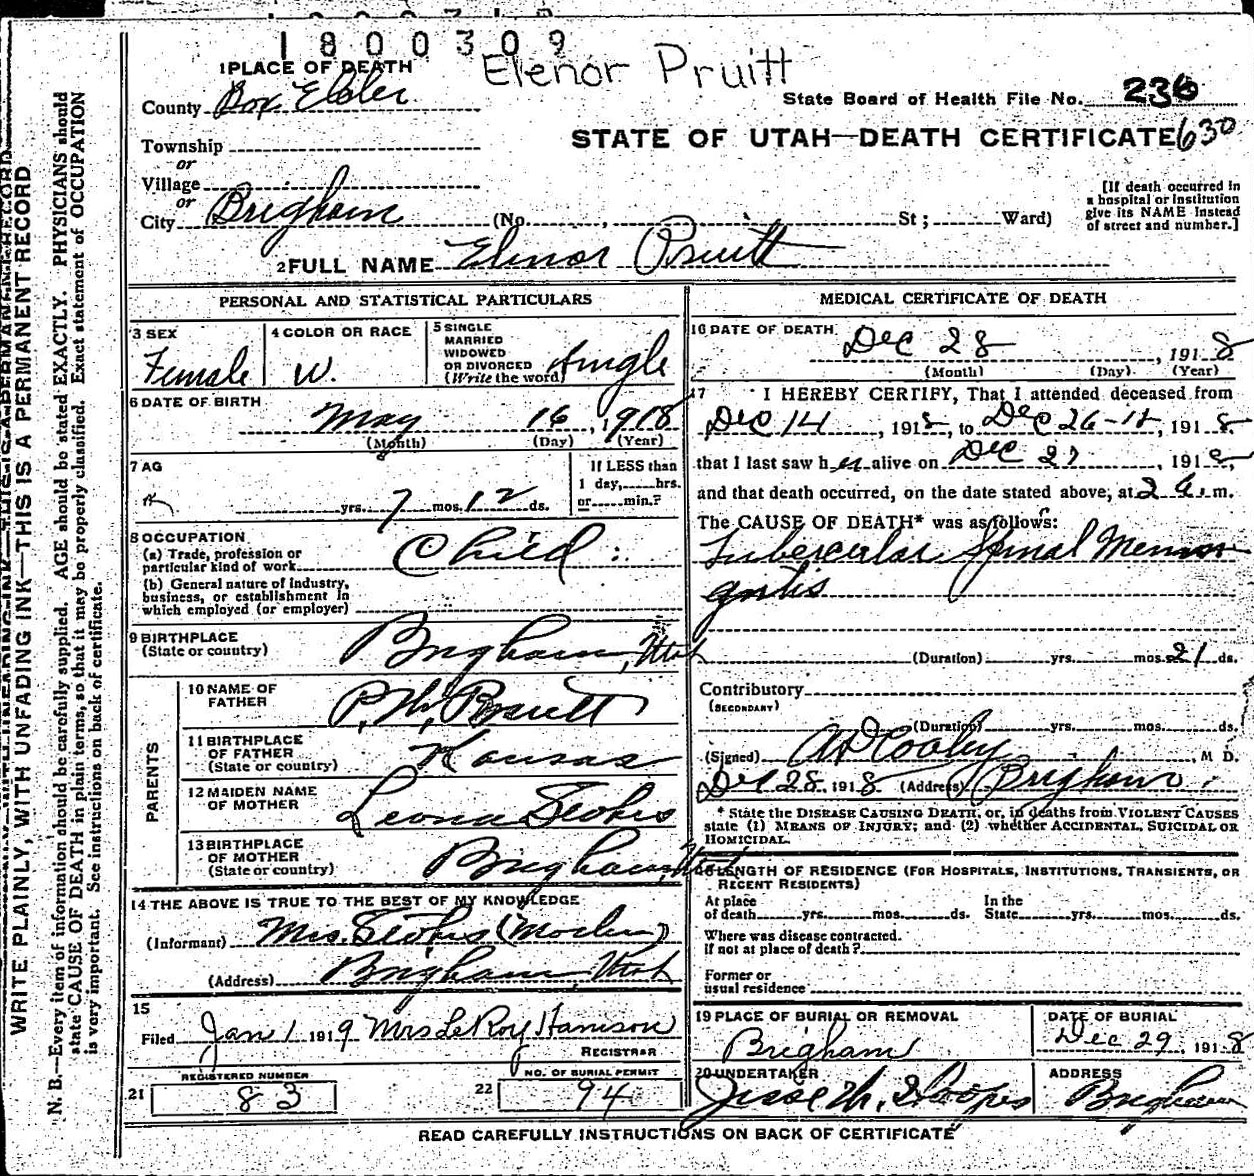 1800309
Elenor Pruitt
1 PLACE OF DEATH
County Box Elder
State Board of Health File No. 236
Township
STATE OF UTAH—DEATH CERTIFICATE 630
or
Village
or
City Brigham (No. , St; Ward)
[If death occurred in
a hospital or institution
give its NAME instead
of street and number.]
2 FULL NAME Elenor Pruitt
PERSONAL AND STATISTICAL PARTICULARS
3 SEX
Female
4 COLOR OR RACE
W.
5 SINGLE
MARRIED
WIDOWED
OR DIVORCED
(Write the word)
Single
6 DATE OF BIRTH
May 16, 1918
(Month) (Day) (Year)
7 AG
yrs. 7 mos. 12 ds.
If LESS than
1 day, hrs.
or min.?
8 OCCUPATION
(a) Trade, profession or
particular kind of work
Child
(b) General nature of industry,
business, or establishment in
which employed (or employer)
9 BIRTHPLACE
(State or country)
Brigham, Utah
PARENTS
10 NAME OF
FATHER
Pruitt
11 BIRTHPLACE
OF FATHER
(State or country)
Kansas
12 MAIDEN NAME
OF MOTHER
Leona Stokes
13 BIRTHPLACE
OF MOTHER
(State or country)
Brigham, Utah
14 THE ABOVE IS TRUE TO THE BEST OF MY KNOWLEDGE
(Informant) Mrs. Stokes
(Address) Brigham, Utah
15
Filed Jan 1 1919 Mrs LeRoy Harrison
REGISTRAR
21 REGISTERED NUMBER
83
22 NO. OF BURIAL PERMIT
94
MEDICAL CERTIFICATE OF DEATH
16 DATE OF DEATH
Dec 28, 1918
(Month) (Day) (Year)
17 I HEREBY CERTIFY, That I attended deceased from
Dec 14, 1918, to Dec 26, 1918
that I last saw her alive on Dec 27, 1918,
and that death occurred, on the date stated above, at 2 a.m.
The CAUSE OF DEATH* was as follows:
Tubercular Spinal Menin
gitis
(Duration) yrs. mos. 21 ds.
Contributory
(SECONDARY)
(Duration) yrs. mos. ds.
(Signed) AD Cooley, M D.
Dec 28 1918 (Address) Brigham
* State the DISEASE CAUSING DEATH, or, in deaths from VIOLENT CAUSES
state (1) MEANS OF INJURY; and (2) whether ACCIDENTAL, SUICIDAL OR
HOMICIDAL.
LENGTH OF RESIDENCE (FOR HOSPITALS, INSTITUTIONS, TRANSIENTS, OR
RECENT RESIDENTS)
At place
of death yrs. mos. ds.
In the
State yrs. mos. ds.
Where was disease contracted.
If not at place of death?
Former or
usual residence
19 PLACE OF BURIAL OR REMOVAL
Brigham
DATE OF BURIAL
Dec 29, 1918
20 UNDERTAKER
Jesse
ADDRESS
Brigham
READ CAREFULLY INSTRUCTIONS ON BACK OF CERTIFICATE
WRITE PLAINLY, WITH UNFADING INK—THIS IS A PERMANENT RECORD
N. B.—Every item of information should be carefully supplied. AGE should be stated EXACTLY. PHYSICIANS should
state CAUSE OF DEATH in plain terms, so that it may be properly classified. Exact statement of OCCUPATION
is very important. See instructions on back of certificate.